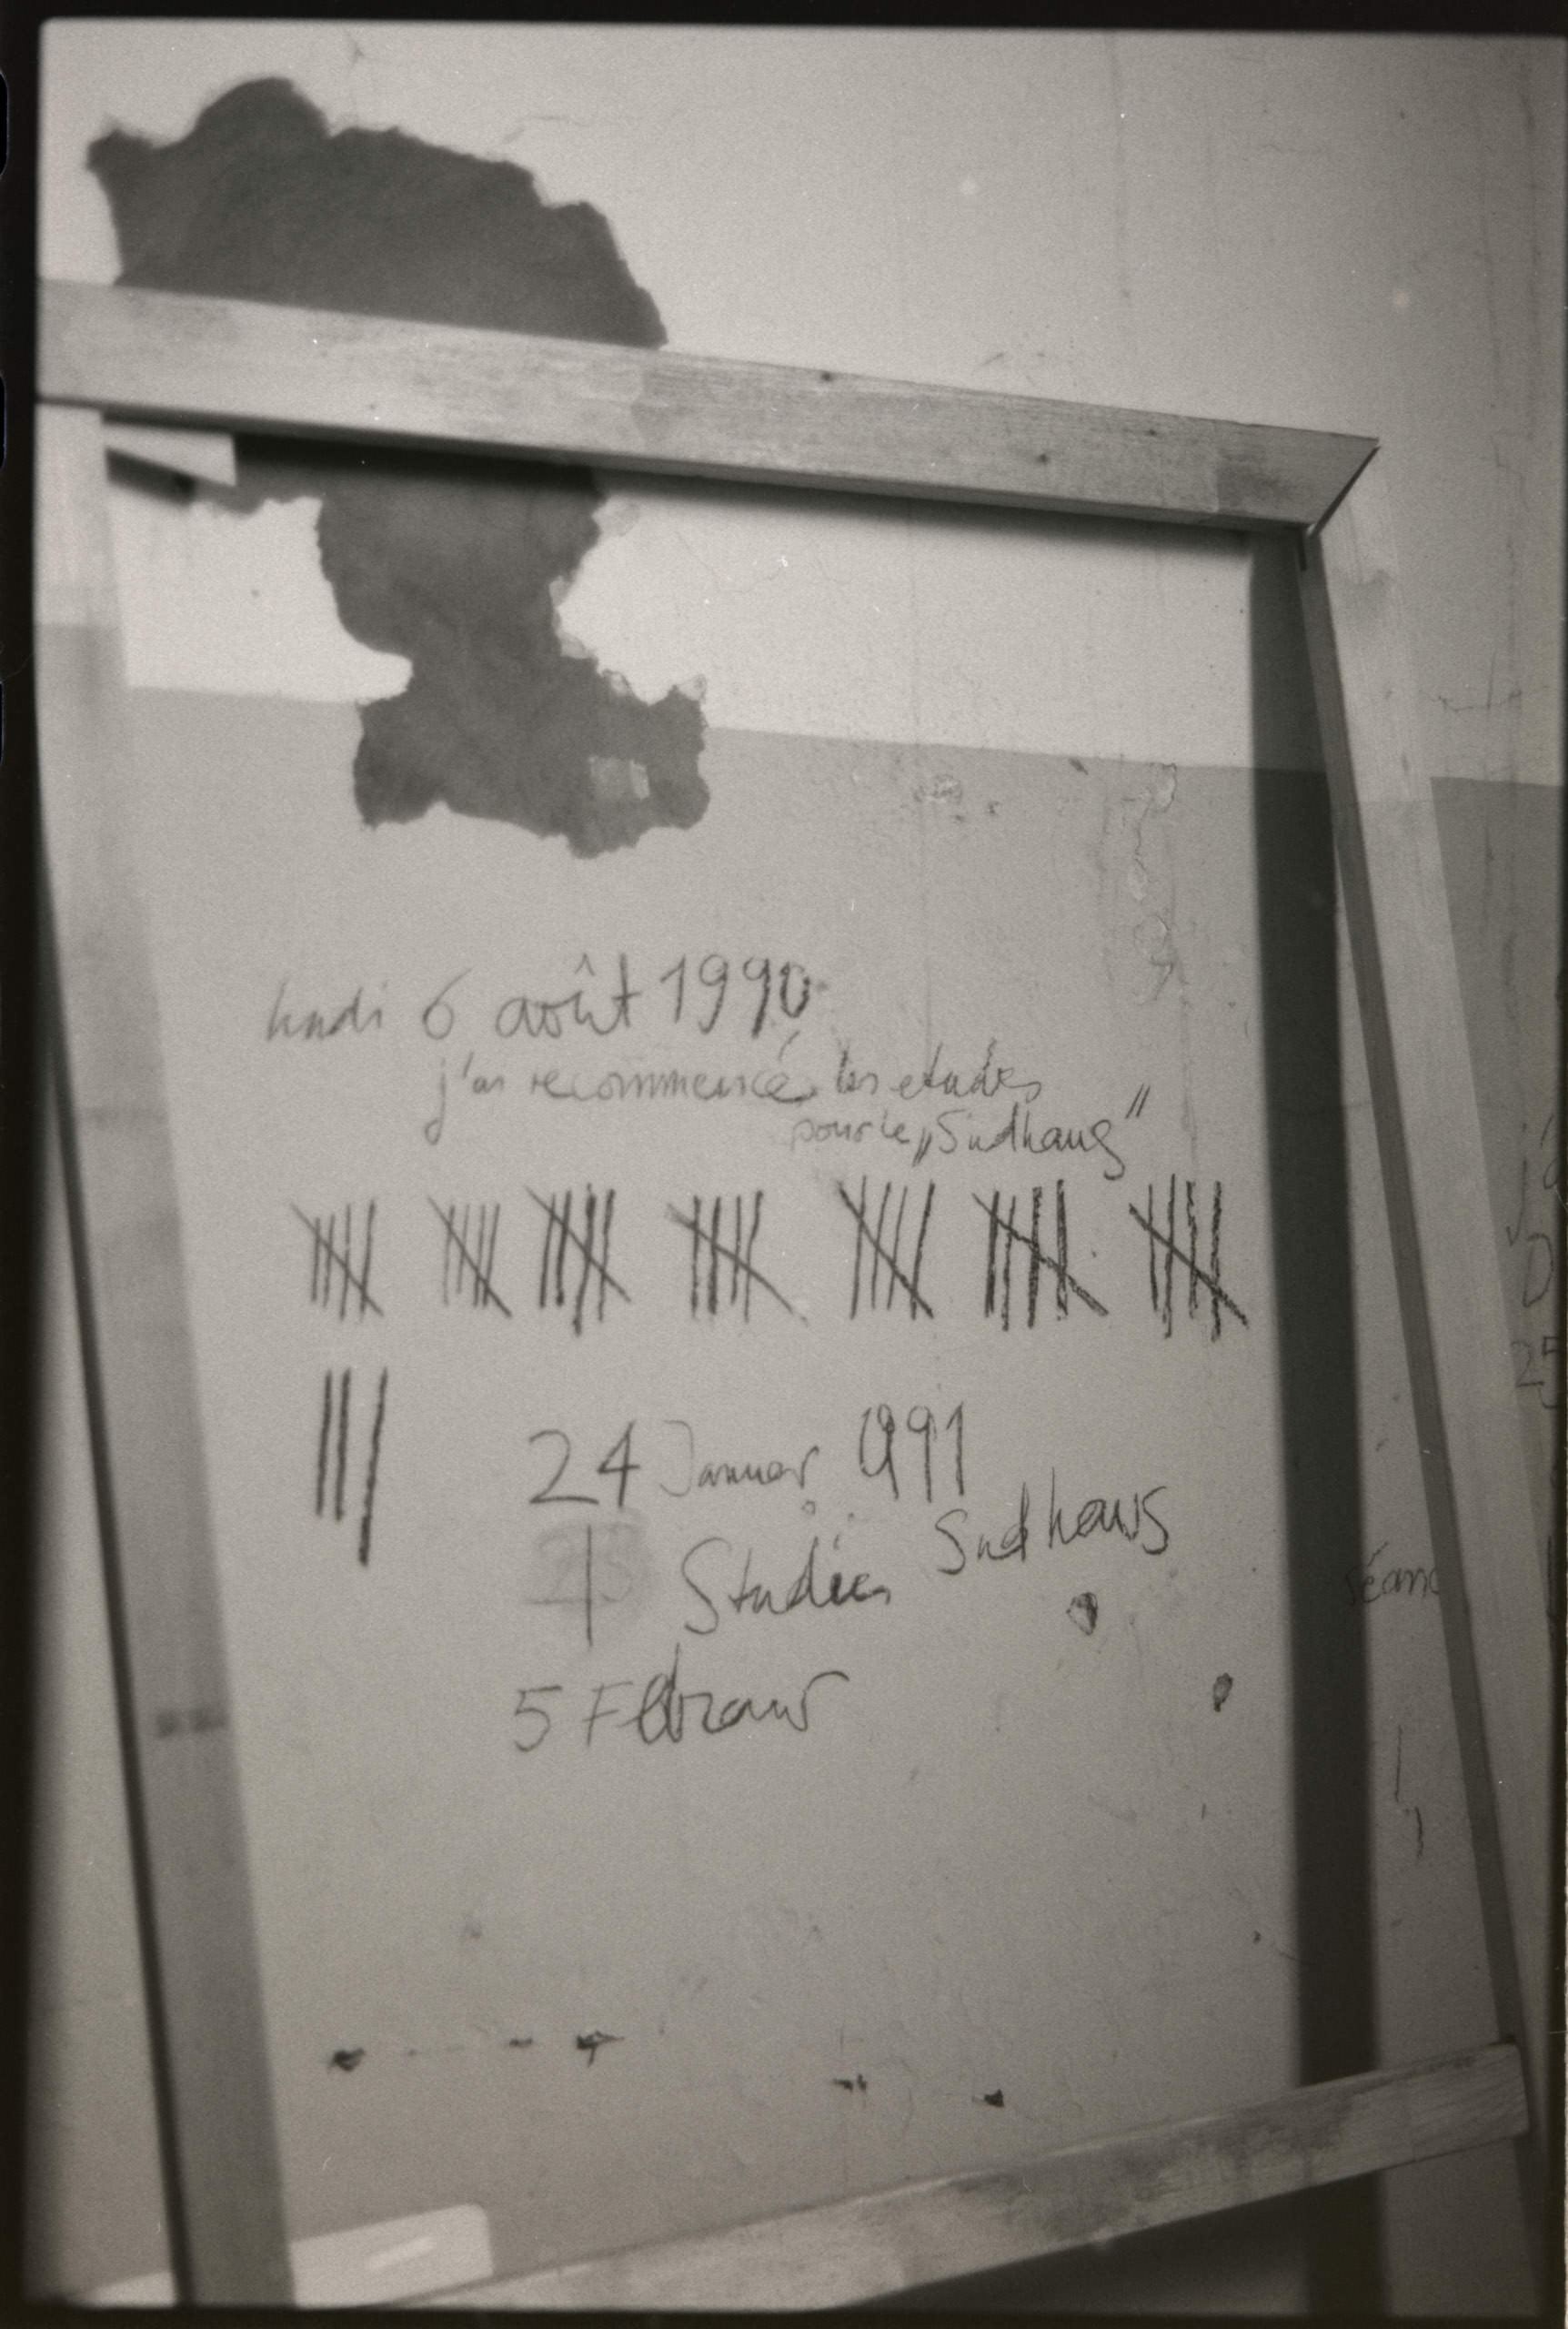 lundi 6 août 1990
j'ai recommencé les etudes
pour le „Sudhaus"
24 Januar 1991
Studien Sudhaus
5 Februar
séanc
25